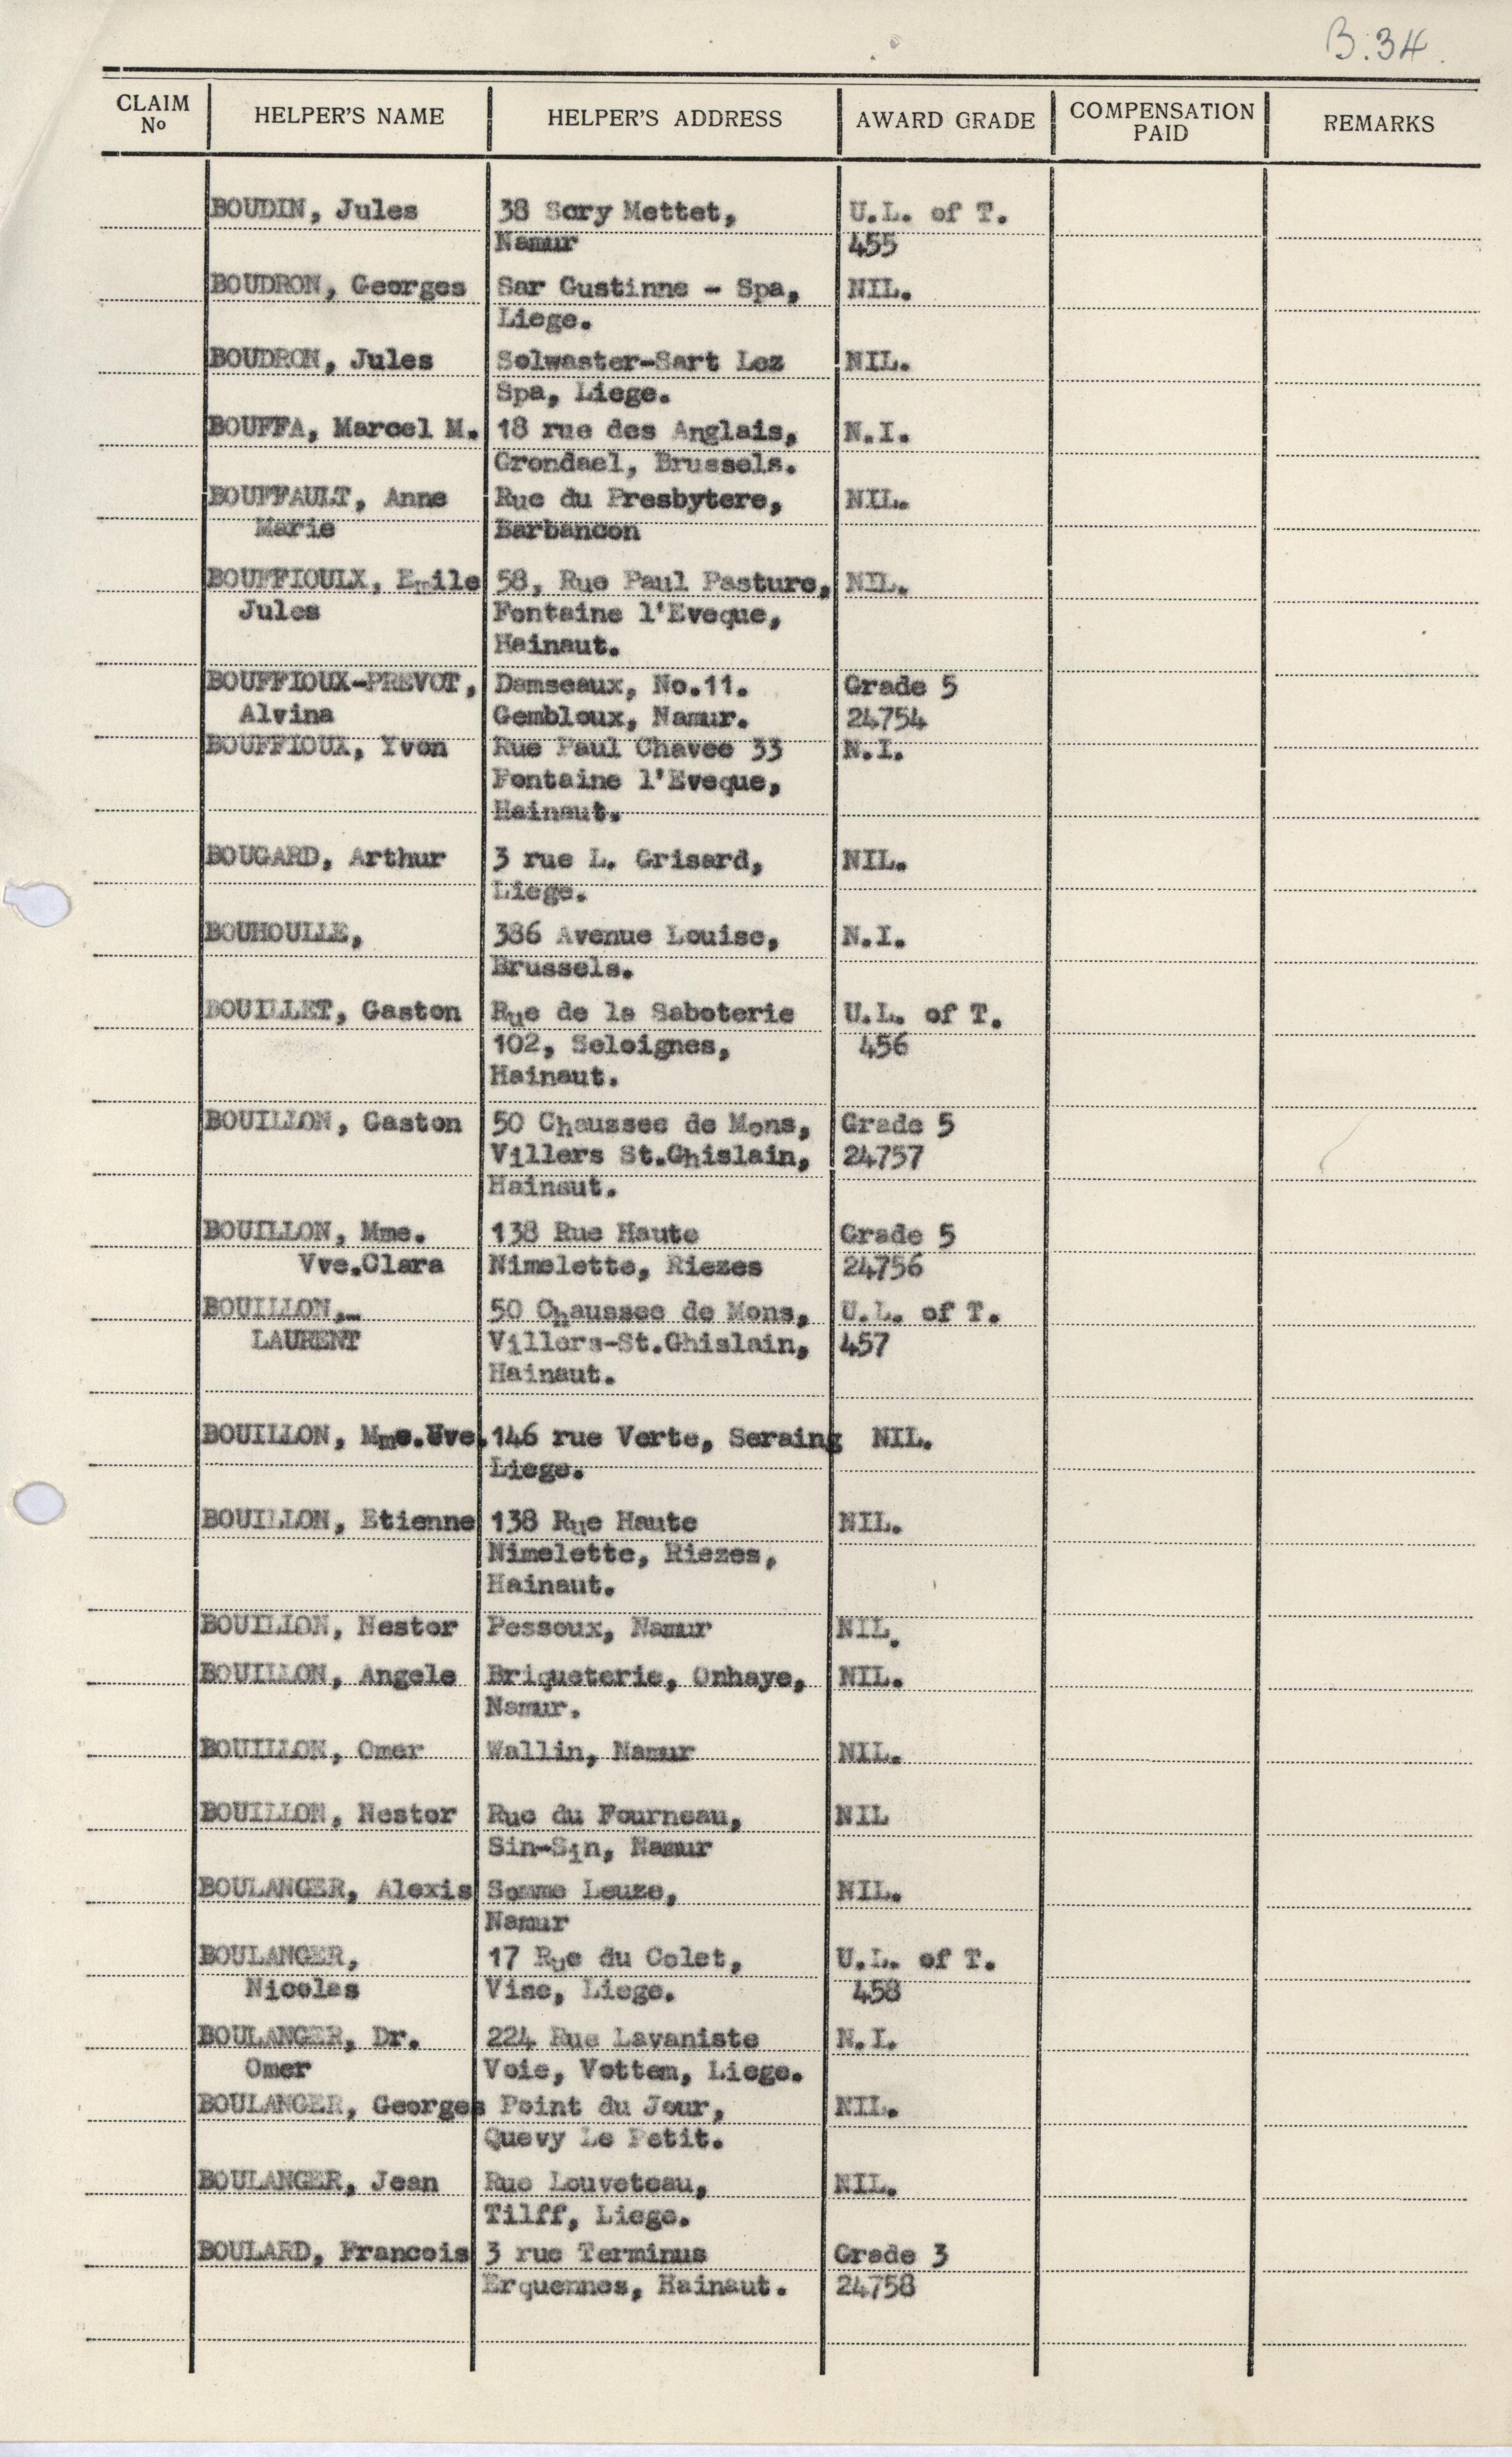 B.34.
CLAIM No HELPER'S NAME HELPER'S ADDRESS AWARD GRADE COMPENSATION PAID REMARKS
BOUDIN, Jules 38 Scry Mettet, U.L. of T.
Namur 455
BOUDRON, Georges Sar Gustinne - Spa, NIL.
Liege.
BOUDRON, Jules Solwaster-Sart Lez NIL.
Spa, Liege.
BOUFFA, Marcel M. 18 rue des Anglais, N.I.
Grondael, Brussels.
BOUFFAULT, Anne Rue du Presbytere, NIL.
Marie Barbancon
BOUFFIOULX, Emile 58, Rue Paul Pasture, NIL.
Jules Fontaine l'Eveque,
Hainaut.
BOUFFIOUX-PREVOT, Damseaux, No.11. Grade 5
Alvina Gembloux, Namur. 24754
BOUFFIOUX, Yvon Rue Paul Chavee 33 N.I.
Fontaine l'Eveque,
Hainaut.
BOUGARD, Arthur 3 rue L. Grisard, NIL.
Liege.
BOUHOULLE, 386 Avenue Louise, N.I.
Brussels.
BOUILLET, Gaston Rue de la Saboterie U.L. of T.
102, Seloignes, 456
Hainaut.
BOUILLON, Gaston 50 Chaussee de Mons, Grade 5
Villers St.Ghislain, 24757
Hainaut.
BOUILLON, Mme. 138 Rue Haute Grade 5
Vve.Clara Nimelette, Riezes 24756
BOUILLON,- 50 Chaussee de Mons, U.L. of T.
LAURENT Villers-St.Ghislain, 457
Hainaut.
BOUILLON, Mme.Vve. 146 rue Verte, Seraing NIL.
Liege.
BOUILLON, Etienne 138 Rue Haute NIL.
Nimelette, Riezes,
Hainaut.
BOUILLON, Nestor Pessoux, Namur NIL.
BOUILLON, Angele Briqueterie, Onhaye, NIL.
Namur.
BOUILLON, Omer Wallin, Namur NIL.
BOUILLON, Nestor Rue du Fourneau, NIL
Sin-Sin, Namur
BOULANGER, Alexis Somme Leuze, NIL.
Namur
BOULANGER, 17 Rue du Colet, U.L. of T.
Nicolas Vise, Liege. 458
BOULANGER, Dr. 224 Rue Lavaniste N.I.
Omer Voie, Vottem, Liege.
BOULANGER, Georges Point du Jour, NIL.
Quevy Le Petit.
BOULANGER, Jean Rue Louveteau, NIL.
Tilff, Liege.
BOULARD, Francois 3 rue Terminus Grade 3
Erquennes, Hainaut. 24758